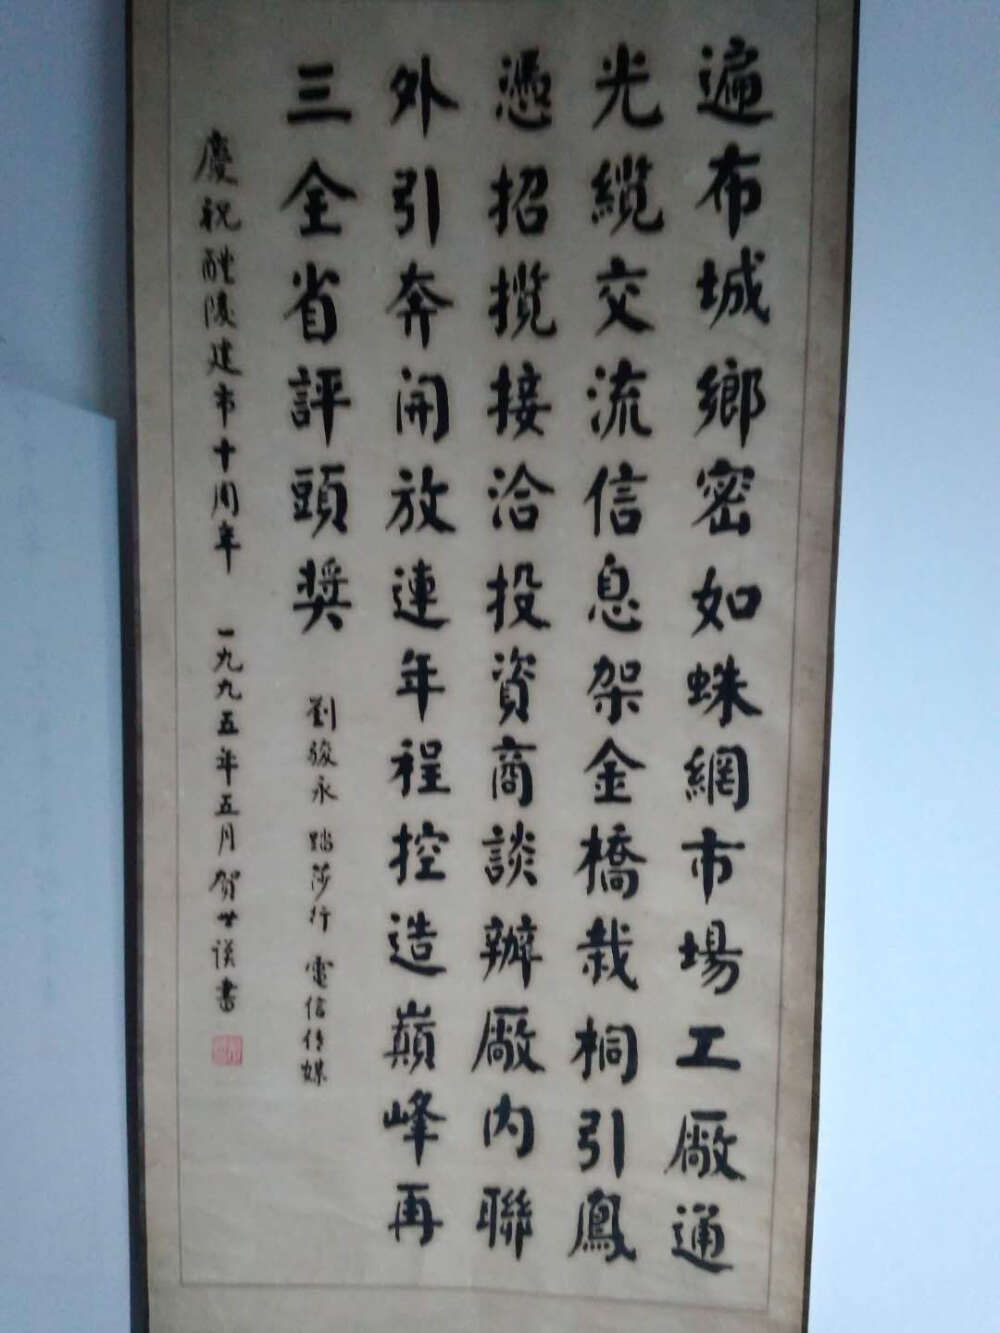 遍布城鄉密如蛛網市場工廠通
光纜交流信息架金橋栽桐引鳳
憑招攬接洽投資商談辦廠內聯
外引奔開放連年程控造巔峰再
三全省評頭獎
劉駿永 踏莎行 電信傳媒
慶祝醴陵建市十周年 一九九五年五月賀世書